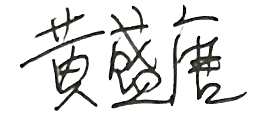 黄盛唐